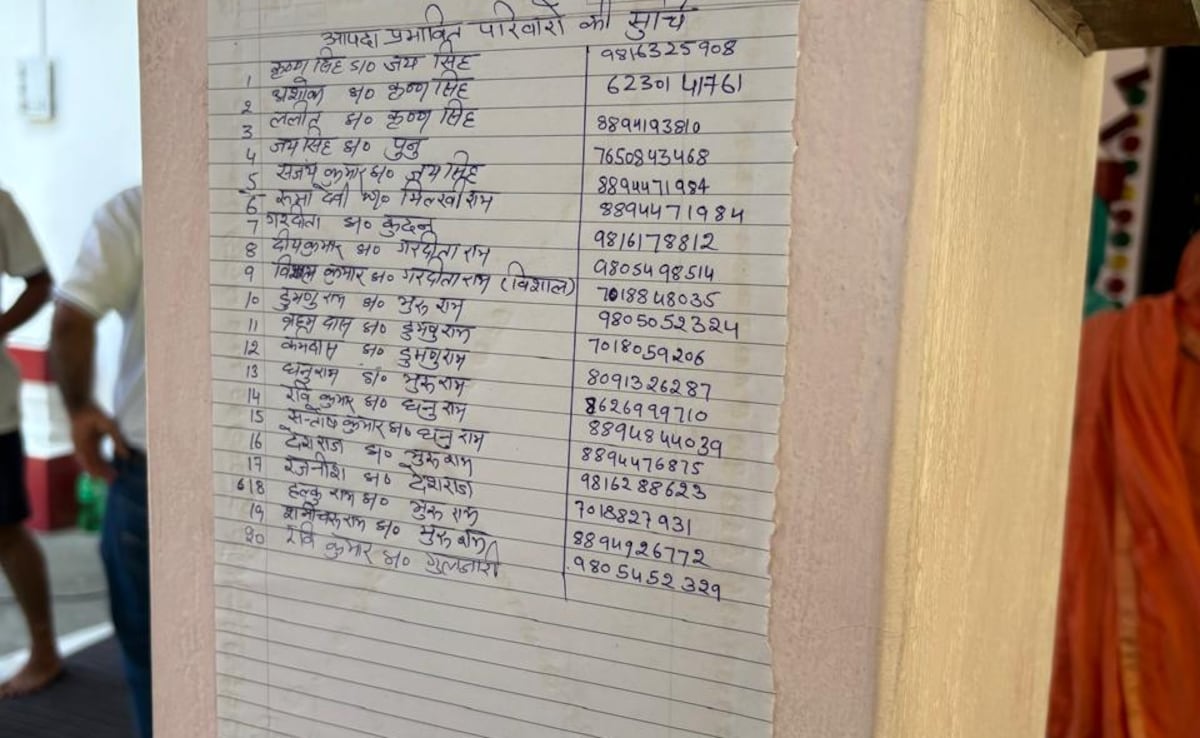 आपदा प्रभावित परिवारों की सुचि
1 कृष्ण सिंह S/O जय सिंह 9816325908
2 अशोक S/O कृष्ण सिंह 6230141761
3 ललीत S/O कृष्ण सिंह 8894193810
4 जय सिंह S/O पुनु 7650843468
5 संजय कुमार S/O जय सिंह 8894471984
6 देवी W/O मिलखी राम 8894471984
7 गरदीता S/O कुंदन 9816178812
8 दीपकुमार S/O गरदीता राम 9805498514
9 कुमार S/O गरदीता राम (विशाल) 7018848035
10 डुमणु राम S/O भुरू राम 9805052324
11 ब्रह्म दास S/O डुमणु राम 7018059206
12 कर्मदास S/O डुमणु राम 8091326287
13 धनु राम S/O भुरू राम 8626999710
14 रवि कुमार S/O धनु राम 8894844039
15 सन्तोष कुमार S/O धनु राम 8894476875
16 देशराज S/O भुरू राम 9816288623
17 रजनीश S/O देशराज 7018827931
18 हल्कु राम S/O भुरू राम 8894926772
19 राम S/O भुरू राम 9805452329
20 रवि कुमार S/O गुलजारी